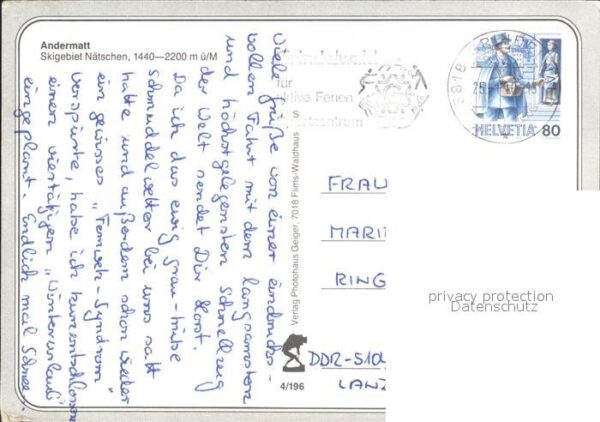 Andermatt
Skigebiet Nätschen, 1440—2200 m ü/M
Viele Grüße von einer eindrucks-
vollen Fahrt mit dem langsamsten
und höchstgelegensten Schnellzug
der Welt sendet Dir Horst.
Da ich das ewig grau-trübe
Schmuddelwetter bei uns satt
hatte und außerdem schon wieder
ein gewisses "Fernweh-Syndrom"
verspürte, habe ich kurzentschlossen
einen viertägigen "Winterurlaub"
eingeplant. Endlich mal Schnee..
Verlag Photohaus Geiger, 7018 Flims-Waldhaus
4/196
Grindelwald
für
aktive Ferien
3818
HELVETIA 80
FRAU
MARI
RING
DDR-510
LANZ
privacy protection
Datenschutz